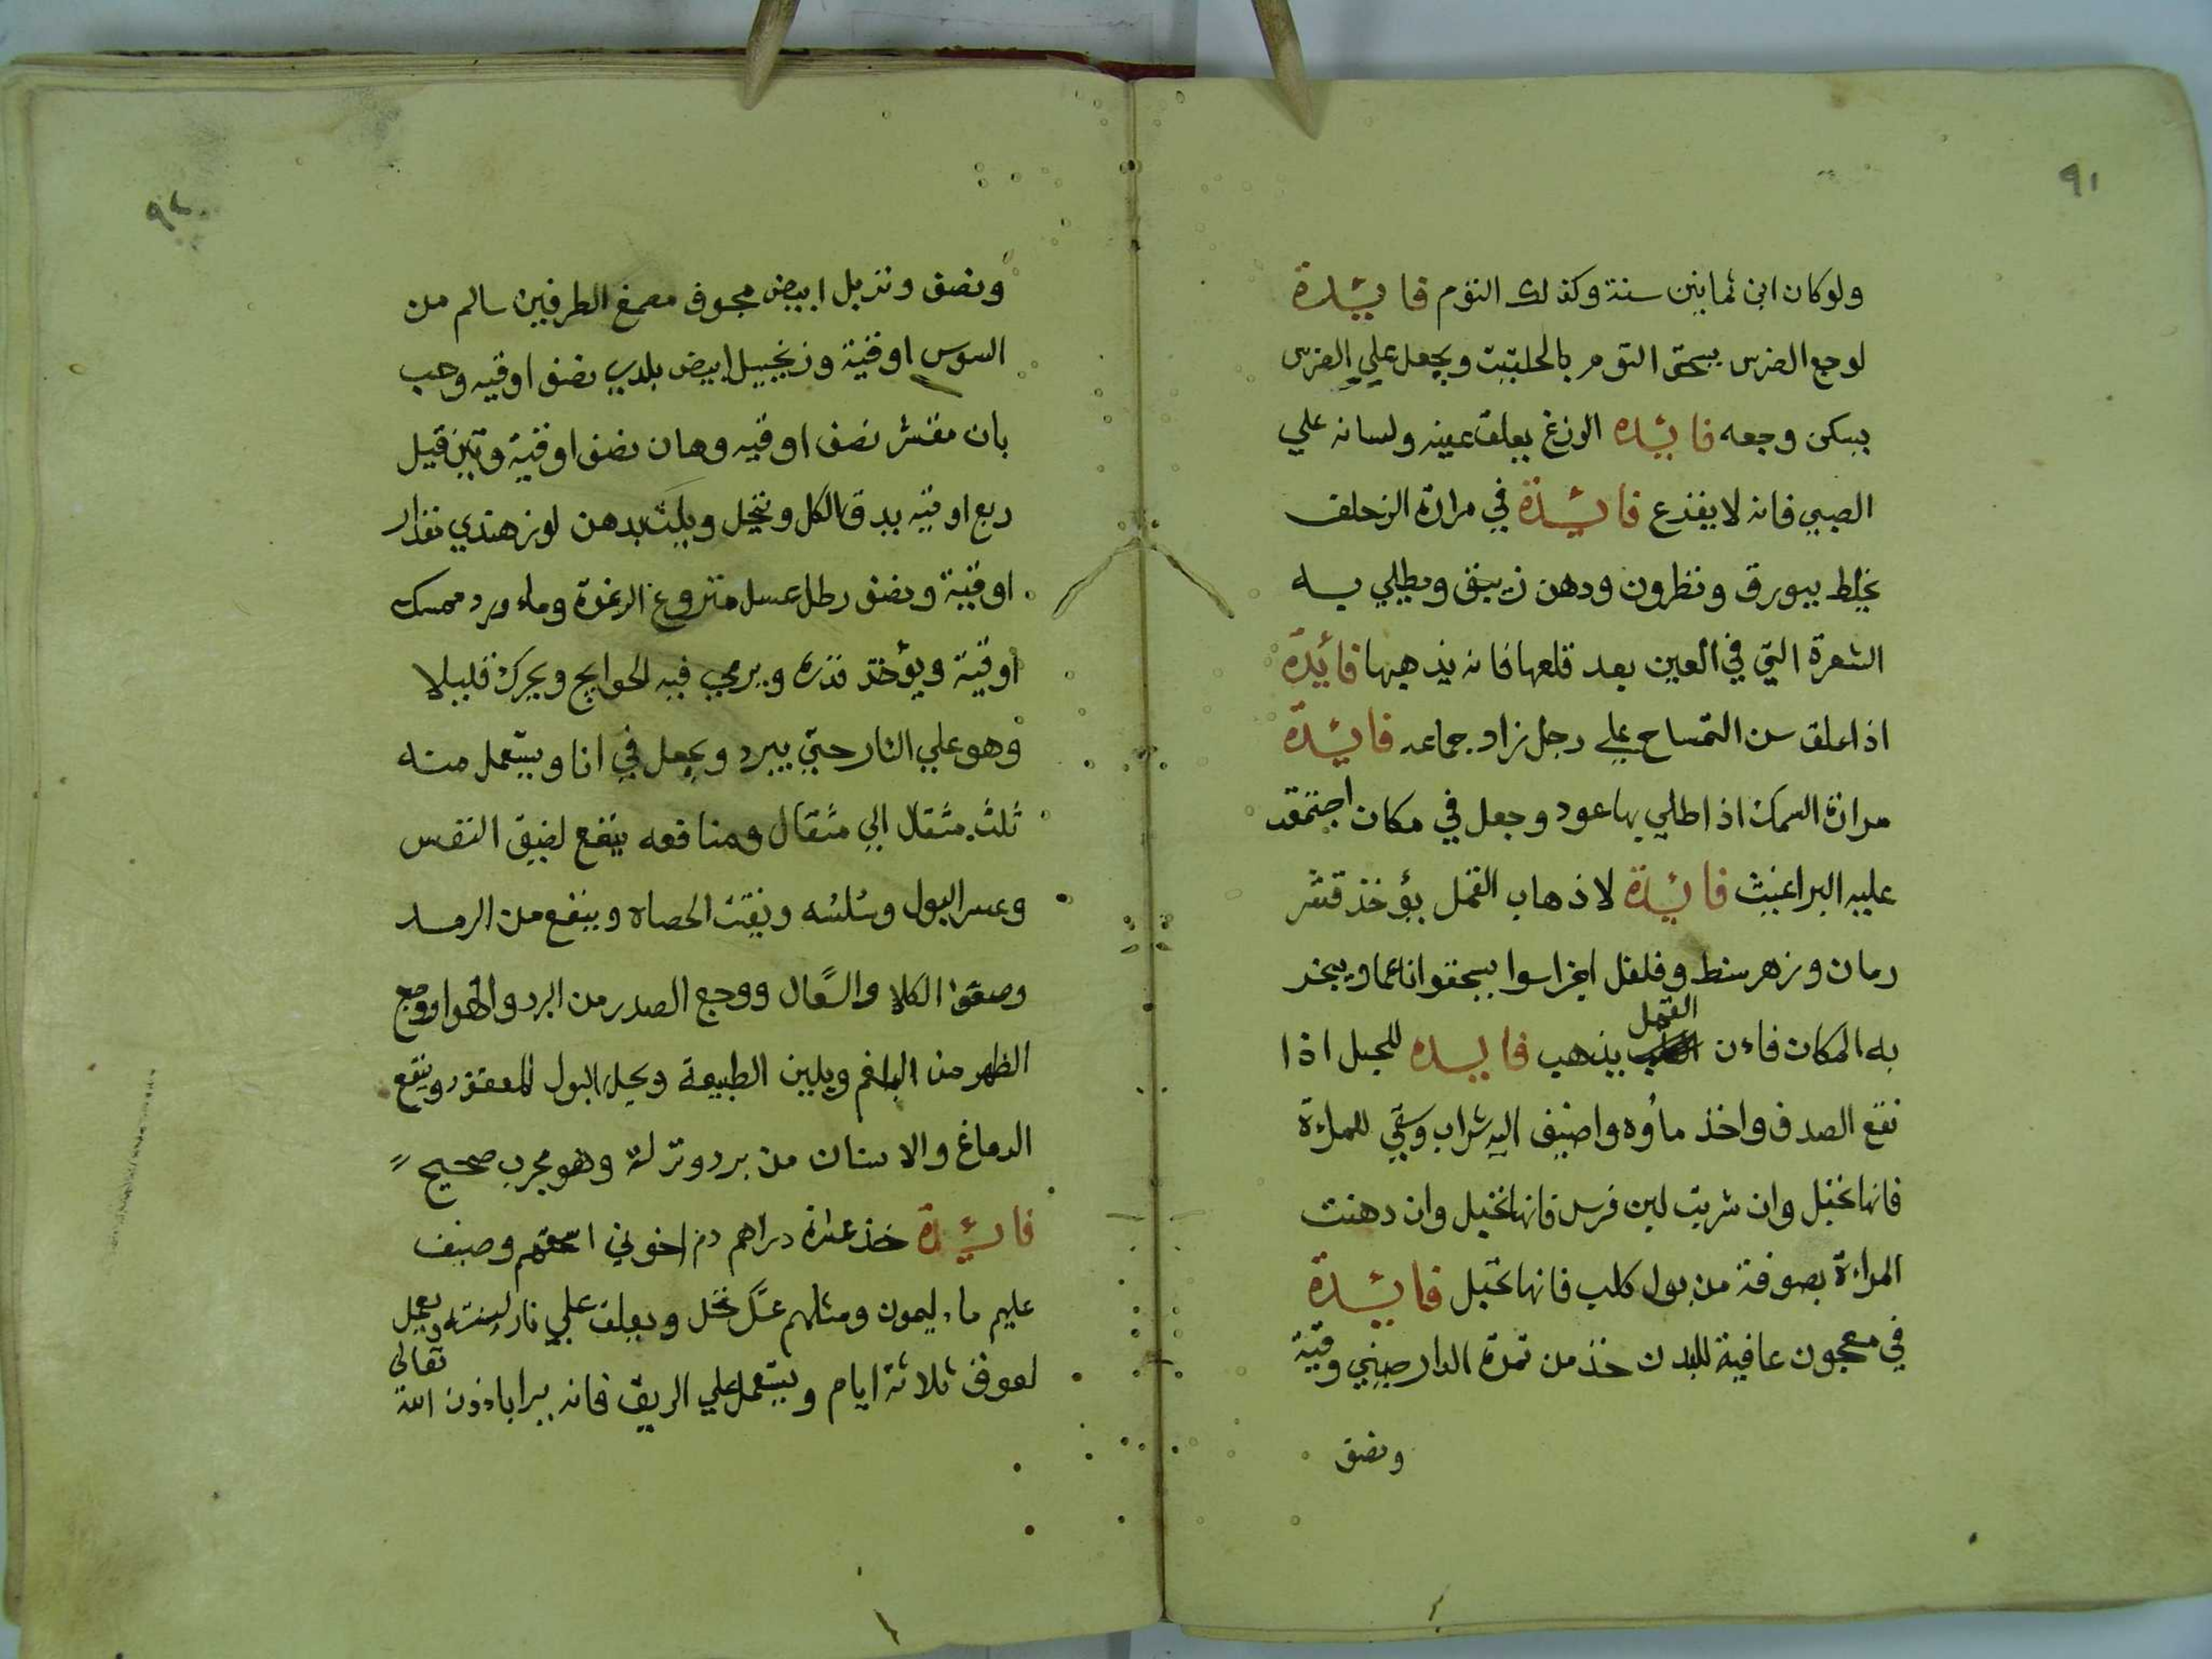 ٩١
ولو كان ابن ثمانين سنة وكذلك الثوم فائدة
لوجع الضرس يسحق الثوم بالحلتيت ويجعل علي الضرس
يسكن وجعه فائده الوزغ يعلق عينه ولسانه علي
الصبي فانه لا يفزع فائدة في مرارة الزحلف
يخلط ببورق ونطرون ودهن زيبق ويطلي به
الشعرة التي في العين بعد قلعها فانه يذهبها فائدة
اذا علق سن التمساح علي رجل زاد جماعه فائدة
مرارة السمك اذا طلي بها عود وجعل في مكان اجتمعت
عليه البراغيث فائدة لاذهاب القمل يؤخذ قشر
رمان وزهر سنط وفلفل اجزا سوا يسحقوا ناعما ويبخر
به المكان فاءن القمل يذهب فايده للحبل اذا
نقع الصدف واخذ ماؤه واضيف اليه شراب وسقي للمراءة
فانها تحبل وان شربت لبن فرس فانها تحبل وان دهنت
المراءة بصوفة من بول كلب فانها تحبل فائدة
في معجون عافية للبدن خذ من تمرة الدارصيني وقية
ونصف
٩٢
ونصف وتربل ابيض مجوف مصمغ الطرفين سالم من
السوس اوقية وزنجبيل ابيض بلدي نصف اوقيه وحب
بان مقشر نصف اوقيه وهان نصف اوقية و
ربع اوقيه يدق الكل وينخل ويلت بدهن لوز هندي مقدار
اوقية ونصف رطل عسل منزوع الرغوة وماء ورد ممسك
اوقية ويؤخذ قدره ويرمي فيه الحوايج ويحرك قليلا
وهو علي النار حتي يبرد ويجعل في انا ويستعمل منه
ثلث مثقال الي مثقال ومنافعه ينفع لضيق النفس
وعسر البول وسلسه ويفتت الحصاه وينفع من الرمد
الكلا والسعال ووجع الصدر من البرد والهوا ووجع
الظهر من البلغم ويلين الطبيعة ويحل البول المعقود وينفع
الدماغ والاسنان من برد ونزلة وهو مجرب صحيح
فائدة خذ عشرة دراهم دم اخوني اسحقهم وضيف
عليهم ماء ليمون ومثلهم عسل نحل ويعلق علي نار لينة ويعمل
لعوق ثلاثة ايام ويستعمل علي الريق فانه يبرا باءذن الله تعالي